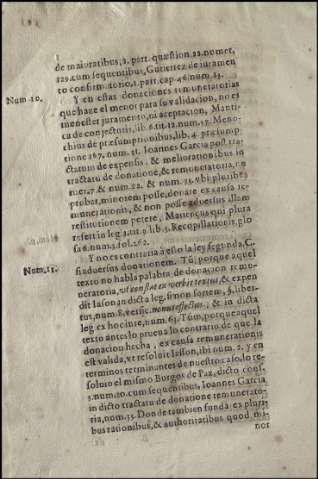 de maioratibus, 2. part. quæstion 22. numer.
229. cum sequentibus, Gutierrez de iuramen
to confirmatorio, 1. part. cap. 46. num. 23.
Num. 10.
Y en estas donaciones remuneratorias
que haze el menor para su validacion, no es
menester juramento, ni aceptacion, Manti-
ca de coniecturis, lib. 6. tit. 12. num. 17. Meno-
chius de præsumptionibus, lib. 4. præsump
tione 267. num. 51. Ioannes Garcia post tra-
ctatum de expensis, & meliorationibus in
tractatu de donatione, & remuneratoria, nu
mer. 27. & num. 22. & num. 25. vbi pluribus
probat, minorem posse, donare ex causa re-
munerationis, & non posse aduersus illam
restitutionem petere, Matiençus qui plura
refert in leg. 2. tit. 9. lib. 5. Recopillationis, glo
sa 6. num. 5. fol. 262.
Num. 11.
Y no es contraria à esto la ley segunda, C.
si aduersus donationem. Tũ; porque aquel
texto no habla palabra de donacion remu-
neratoria,
dit Iason an dicta leg. si non sortem, §. liber-
tus, num. 8. versic. & in dicta
leg. ex hoc iure, num. 63. Tũm, porque aquel
texto antes lo prueua lo contrario de que la
donacion hecha, ex causa remunerationis
est valida, vt resoluit Iason, ibi num. 2. y en
terminos terminantes de nuestro caso, lo re-
soluio el mismo Burgos de Paz, dicto cons.
3. num. 20. cum sequentibus, Ioannes Garcia
in dicto tractatu de donatione remunerato-
ria, num. 35. Donde tambien funda ex pluri-
bus rationibus, & authoritatibus quod mi-
nor